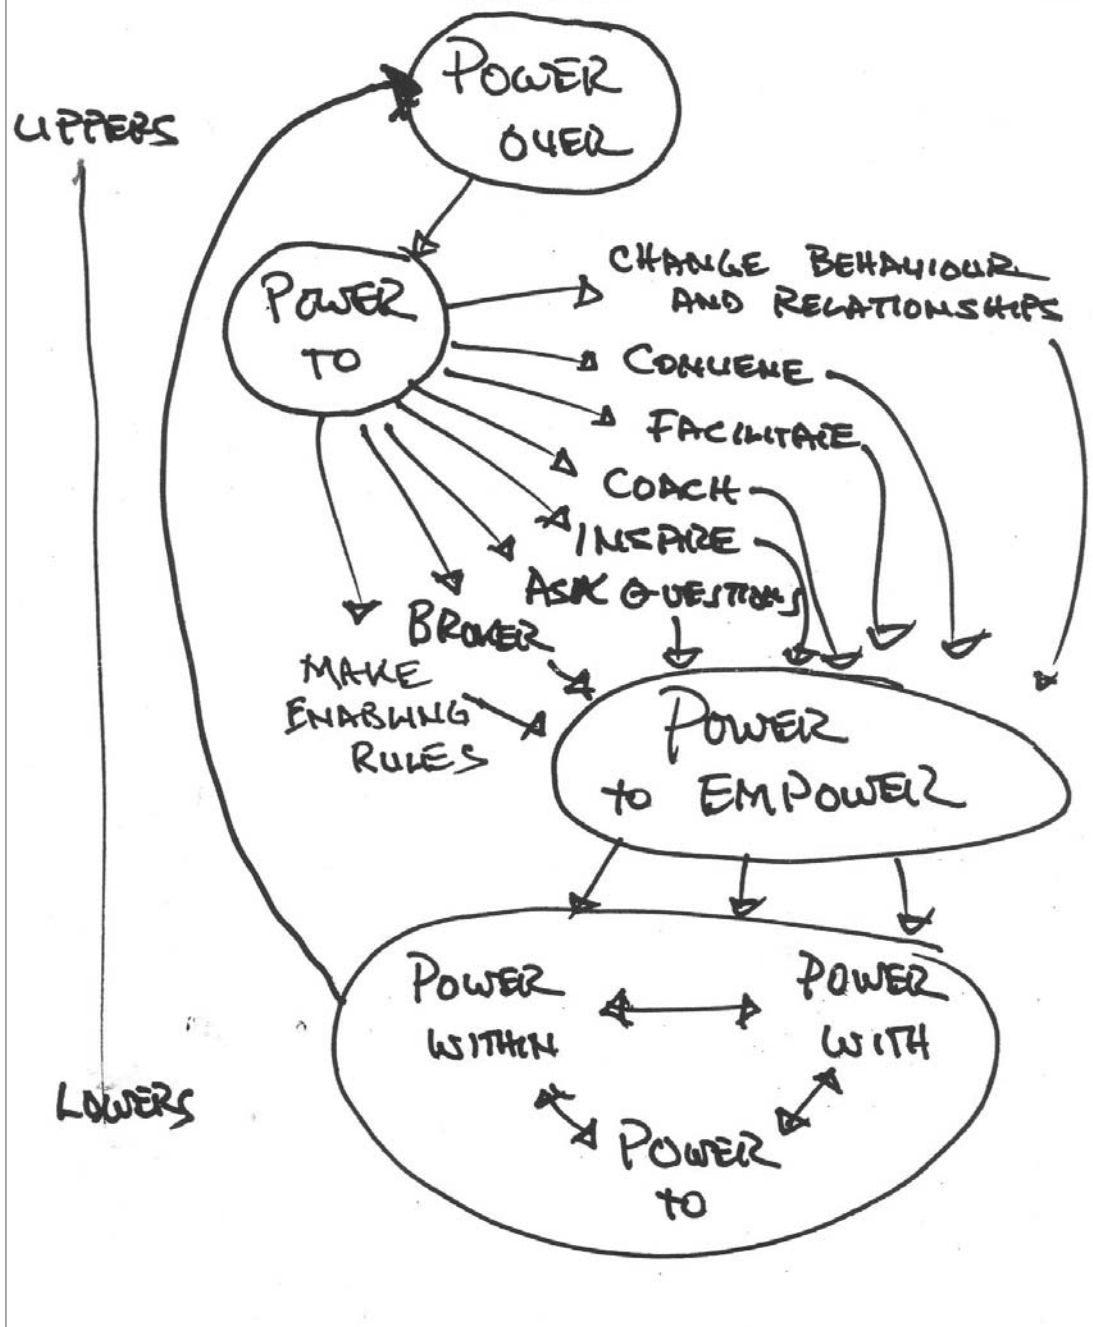 POWER
OVER
UPPERS
POWER
TO
CHANGE BEHAVIOUR
AND RELATIONSHIPS
CONVENE
FACILITATE
COACH
INSPIRE
ASK QUESTIONS
BROKER
MAKE
ENABLING
RULES
POWER
to EMPOWER
POWER
WITHIN
POWER
WITH
POWER
TO
LOWERS